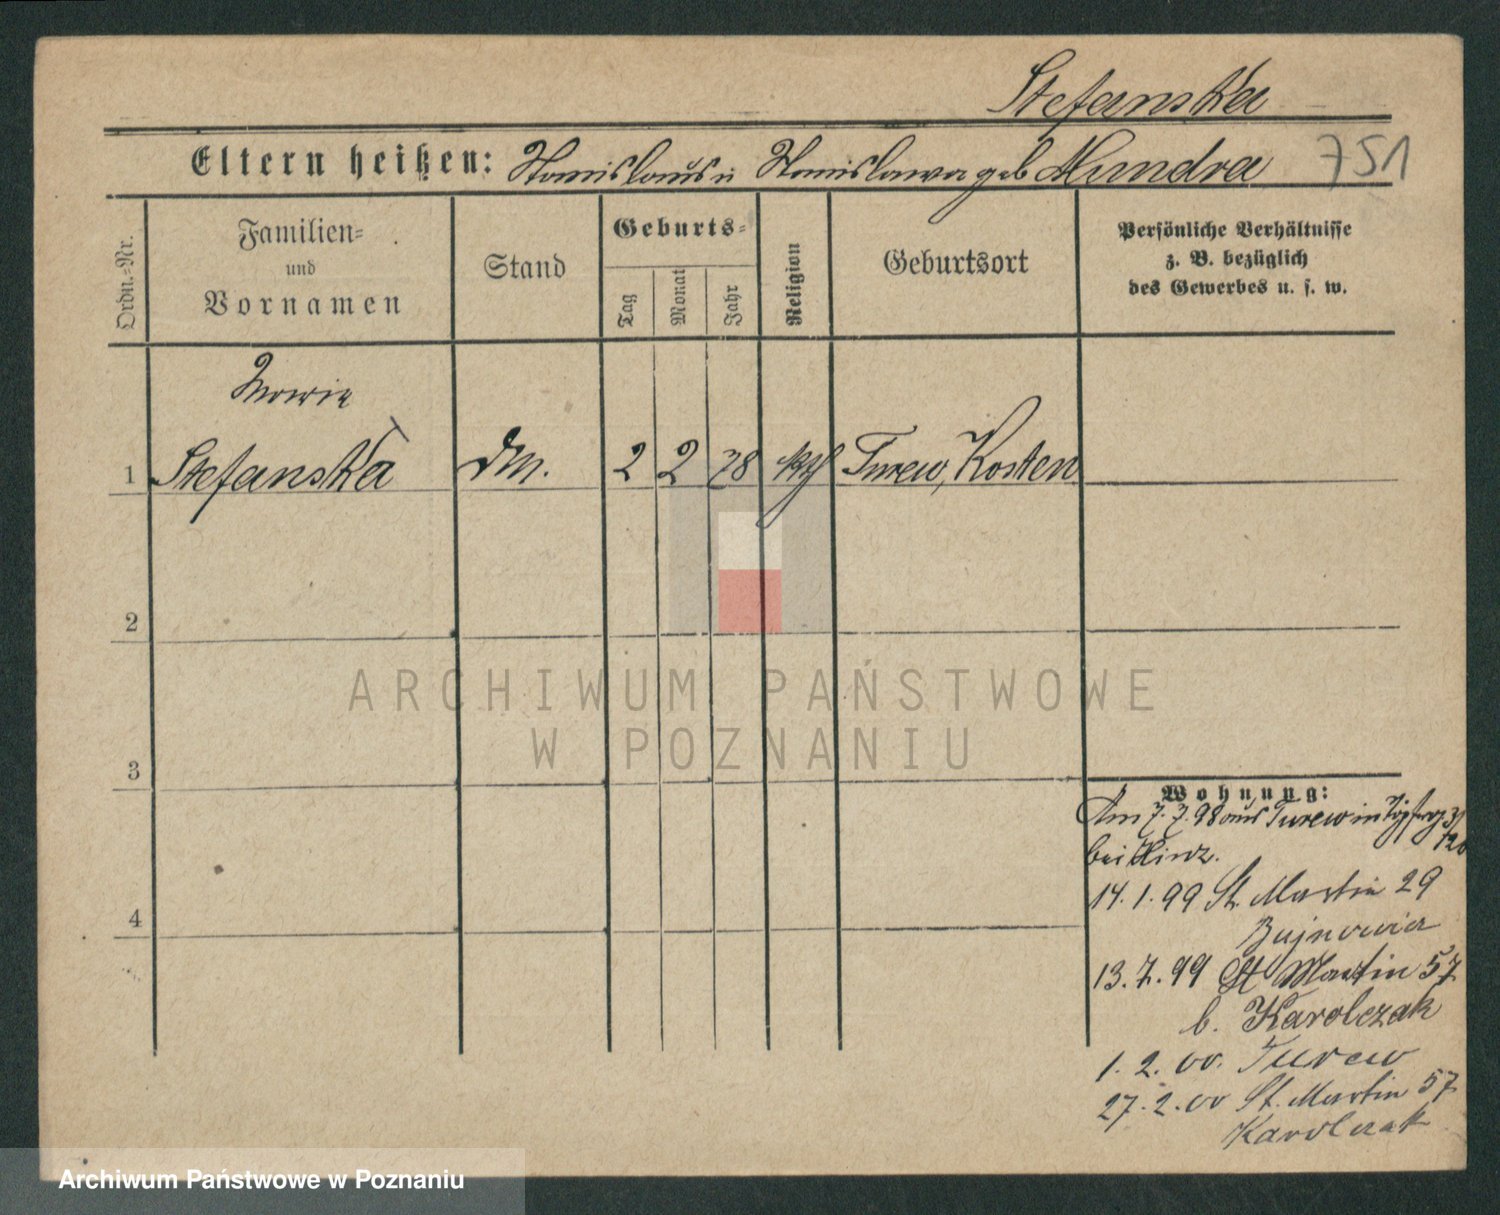 Stefanska
Eltern heißen: Stanislaus u Stanislawa geb Mundra 751
Ordn.=Nr.
Familien=
und
Vornamen
Stand
Geburts=
Tag
Monat
Jahr
Religion
Geburtsort
Persönliche Verhältnisse
z. B. bezüglich
des Gewerbes u. s. w.
1 Stefanska 2 2 78 kth Turew, Kosten
2
3
4
ARCHIWUM PAŃSTWOWE
W POZNANIU
Wohnung:
Am 7.7.98 aus Turew in
bei
14.1.99 St. Martin 29
13.7.99 St Martin 57
b. Karolczak
1.2.00. Turew
27.2.00 St. Martin 57
Karolczak
Archiwum Państwowe w Poznaniu